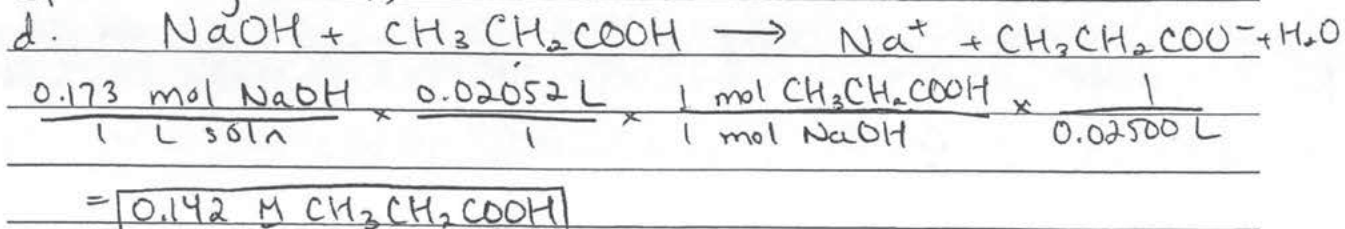 d. NaOH + CH₃CH₂COOH → Na⁺ + CH₃CH₂COO⁻ + H₂O
0.173 mol NaOH / 1 L soln × 0.02052 L / 1 × 1 mol CH₃CH₂COOH / 1 mol NaOH × 1 / 0.02500 L
= 0.142 M CH₃CH₂COOH